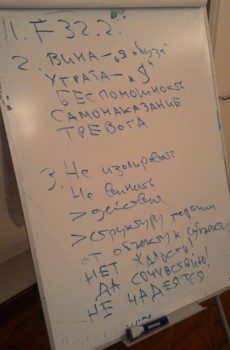 1. F32.2.
2. ВИНА - "Я обуза"
УТРАТА - "Я"
БЕСПОМОЩНОСТЬ
САМОНАКАЗАНИЕ
ТРЕВОГА
3. Не изолировать
Не винить
> действия
> структуру терапии
от объекта к субъекту
НЕТ ЖАЛОСТИ!
ДА СОЧУВСТВИЮ!
НЕ НАДЕЯТСЯ